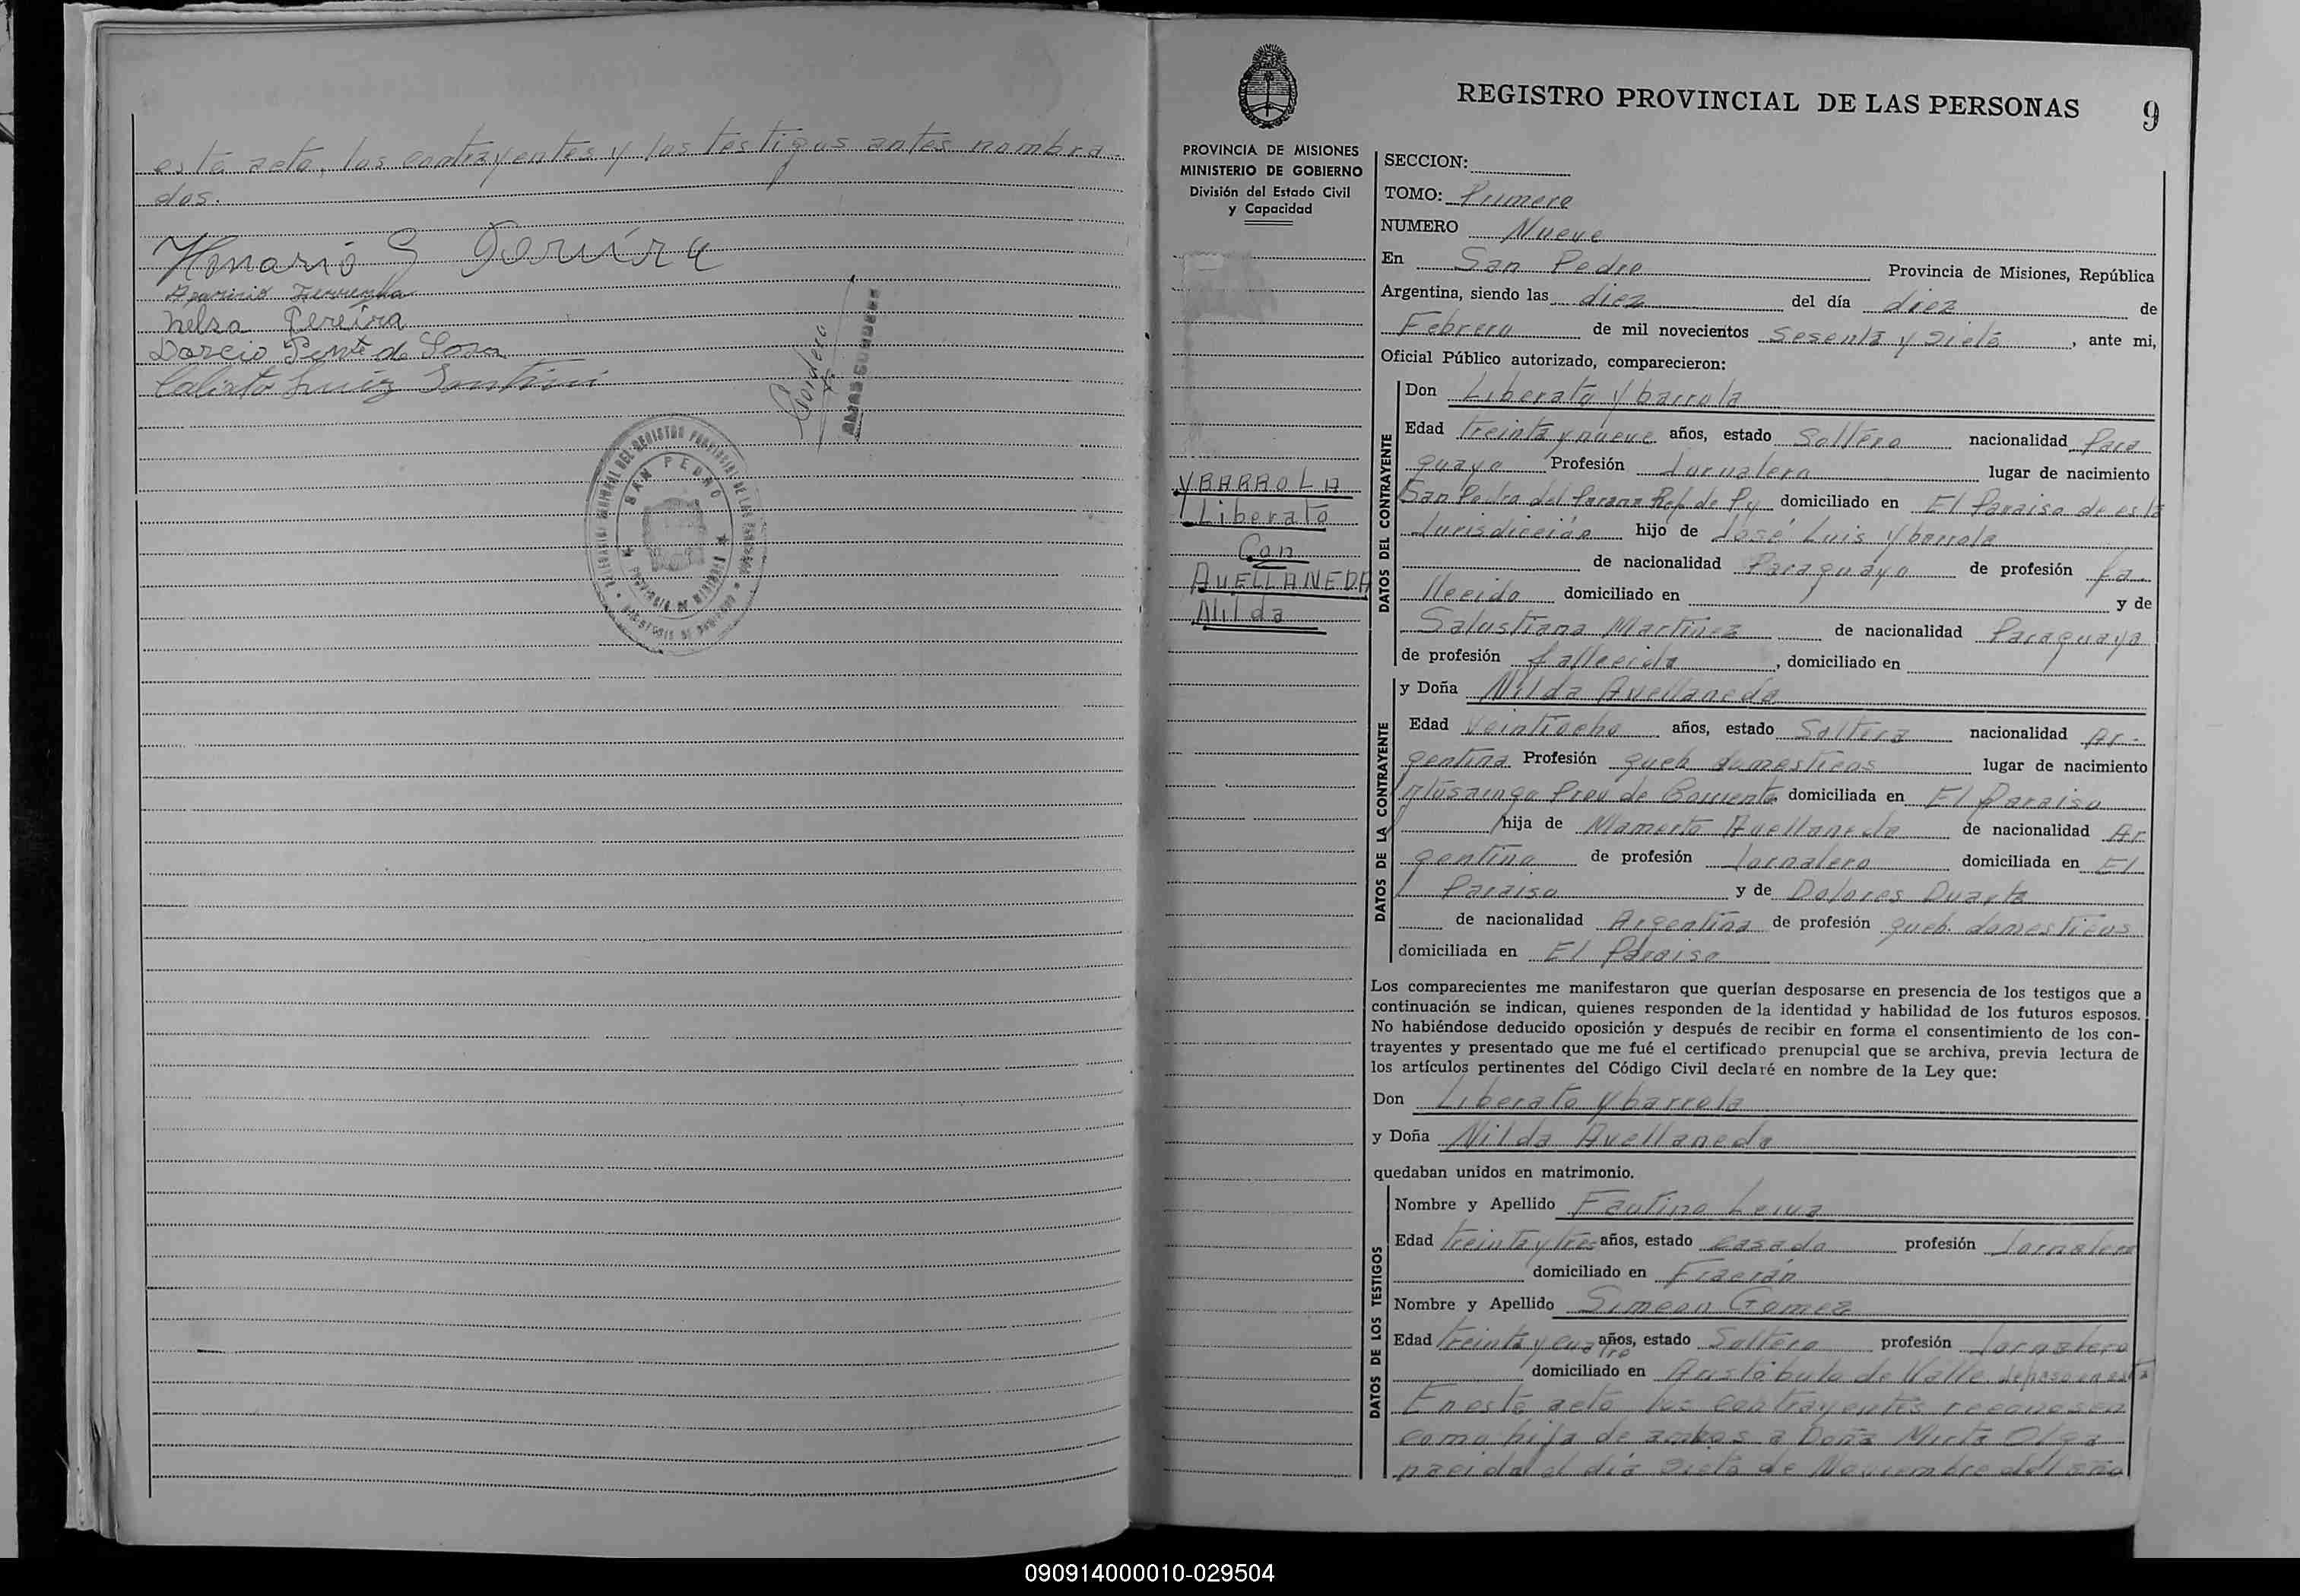 esta acta, los contrayentes y los testigos antes nombra-
dos.
Honorio S Pereira
Aparicio
Nelsa Pereira
Dorcio de Sosa
Calixto Luiz Santini
Cordero
DELEGACION DEL REGISTRO PROVINCIAL DE LAS PERSONAS
SAN PEDRO
PROVINCIA DE MISIONES
PROVINCIA DE MISIONES
MINISTERIO DE GOBIERNO
División del Estado Civil
y Capacidad
YBARROLA
Liberato
Con
AVELLANEDA
Nilda
REGISTRO PROVINCIAL DE LAS PERSONAS 9
SECCION:
TOMO: Primero
NUMERO Nueve
En San Pedro Provincia de Misiones, República
Argentina, siendo las diez del día diez de
Febrero de mil novecientos sesenta y siete, ante mi,
Oficial Público autorizado, comparecieron:
DATOS DEL CONTRAYENTE
Don Liberato Ybarrola
Edad treinta y nueve años, estado Soltero nacionalidad Para
guayo Profesión Jornalero lugar de nacimiento
San Pedro del Parana Rep. de Py domiciliado en El Paraiso de esta
Jurisdicción hijo de José Luis Ybarrola
de nacionalidad Paraguayo de profesión fa-
llecido domiciliado en y de
Salustiana Martinez de nacionalidad Paraguaya
de profesión fallecida, domiciliado en
DATOS DE LA CONTRAYENTE
y Doña Nilda Avellaneda
Edad Veintiocho años, estado Soltera nacionalidad Ar-
gentina Profesión queh. domesticos lugar de nacimiento
Ytusaingo Prov de Corrientes domiciliada en El Paraiso
hija de Mamerto Avellaneda de nacionalidad Ar
gentino de profesión Jornalero domiciliada en El
Paraiso y de Dolores Duarte
de nacionalidad Argentina de profesión queh. domesticos
domiciliada en El Paraiso
Los comparecientes me manifestaron que querían desposarse en presencia de los testigos que a
continuación se indican, quienes responden de la identidad y habilidad de los futuros esposos.
No habiéndose deducido oposición y después de recibir en forma el consentimiento de los con-
trayentes y presentado que me fué el certificado prenupcial que se archiva, previa lectura de
los artículos pertinentes del Código Civil declaré en nombre de la Ley que:
Don Liberato Ybarrola
y Doña Nilda Avellaneda
quedaban unidos en matrimonio.
DATOS DE LOS TESTIGOS
Nombre y Apellido Fautino Leiva
Edad treinta y tres años, estado casado profesión Jornalero
domiciliado en Fracrán
Nombre y Apellido Simeon Gomez
Edad treinta y cuatro años, estado Soltero profesión Jornalero
domiciliado en Aristobulo de Valle de paso en esta
En este acto los contrayentes reconocen
como hija de ambos a Doña Mirta Olga
nacida el dia siete de Noviembre del año
090914000010-029504